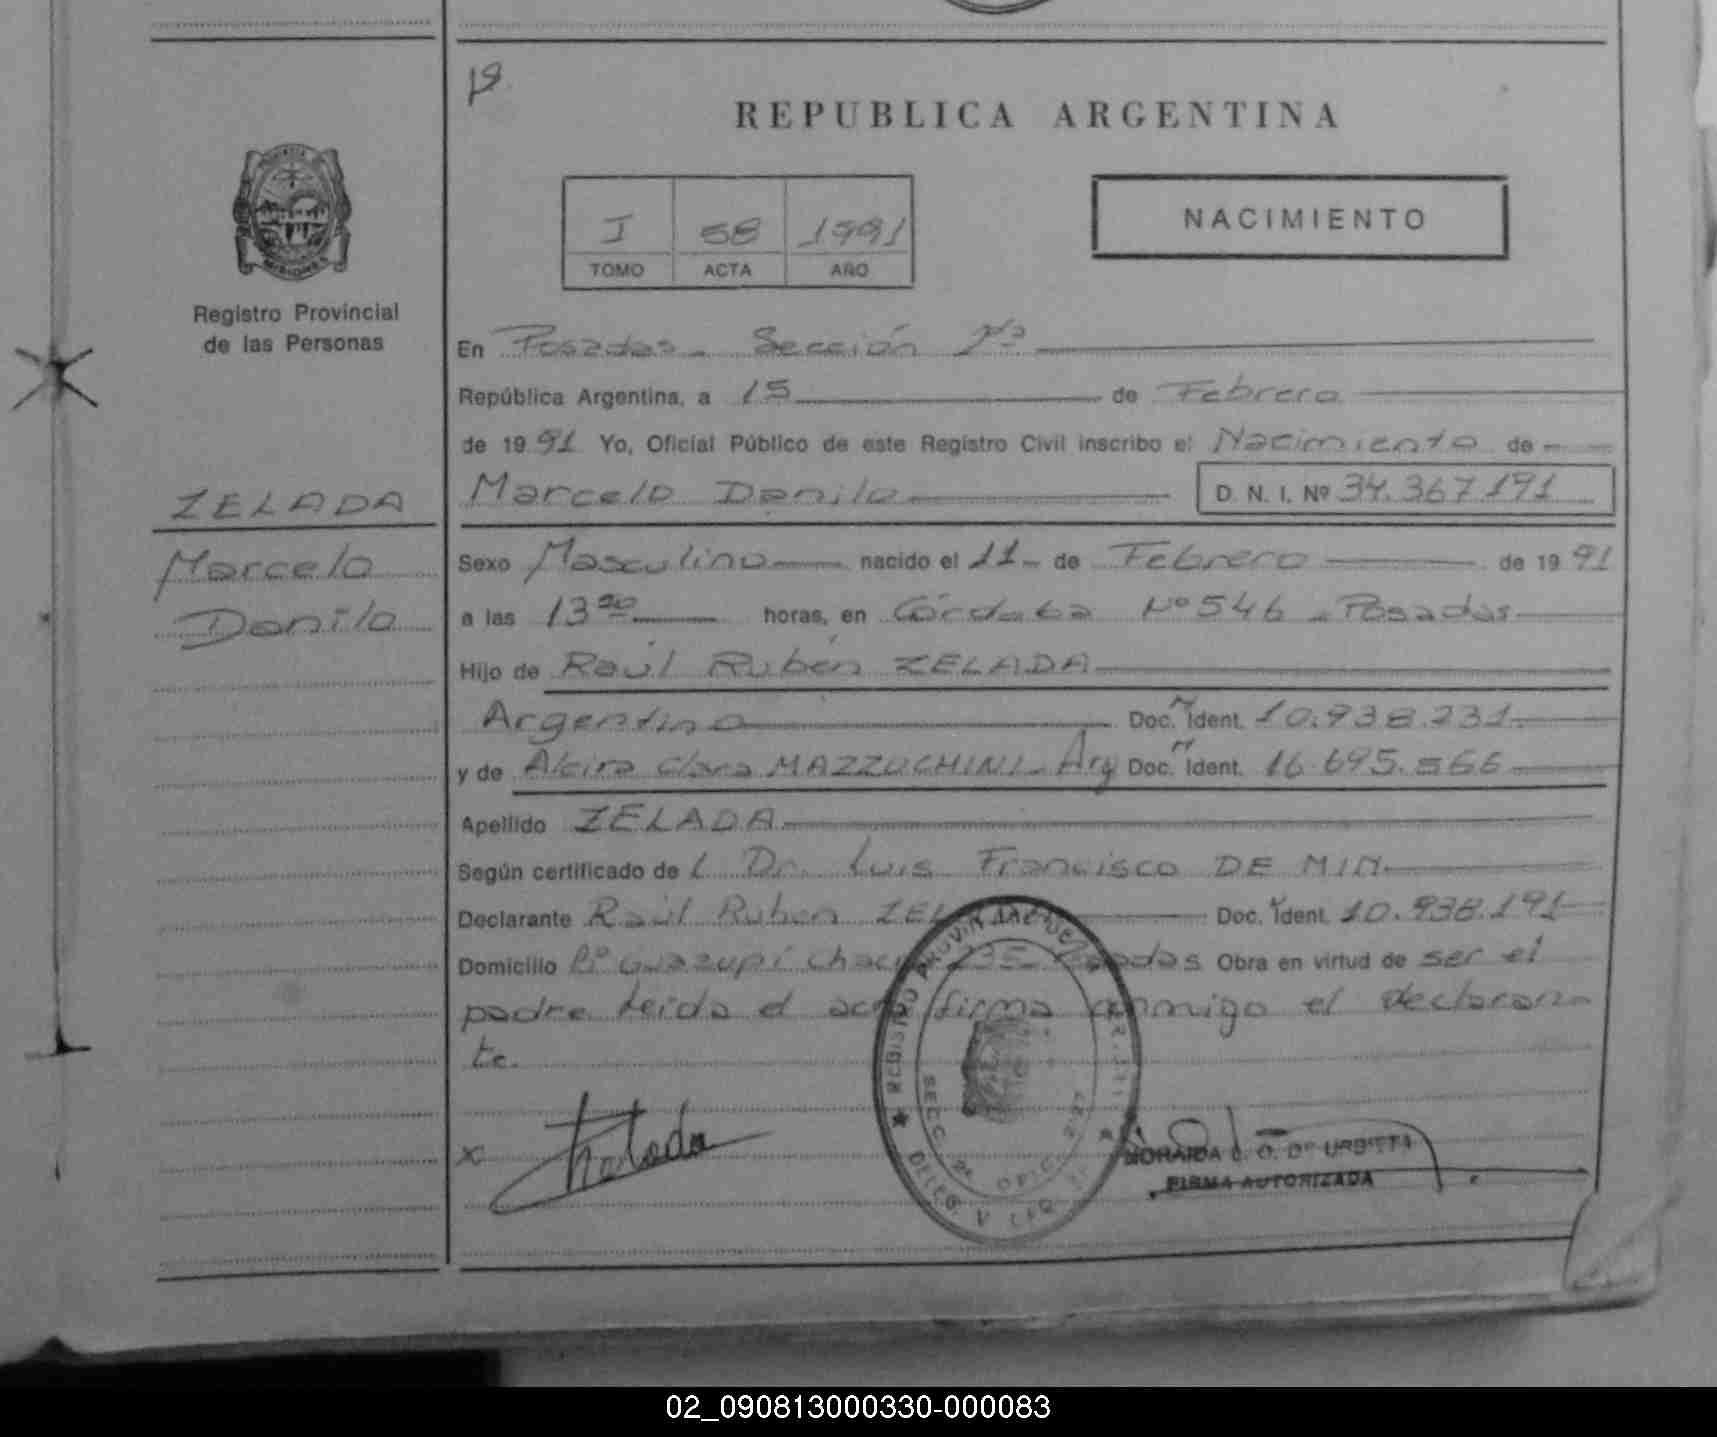 REPUBLICA ARGENTINA
I 58 1991
TOMO ACTA AÑO
NACIMIENTO
MISIONES
Registro Provincial
de las Personas
ZELADA
Marcelo
Danilo
En Posadas - Sección
República Argentina, a 15 de Febrero
de 1991 Yo, Oficial Público de este Registro Civil inscribo el Nacimiento de
Marcelo Danilo D. N. I. Nº 34.367.191
Sexo Masculino nacido el 11 - de Febrero de 1991
a las 13 horas, en Córdoba Nº 546 - Posadas
Hijo de Raúl Rubén ZELADA
Argentino Doc. Ident. 10.938.231.
y de Alcira Clara MAZZUCHINI - Arg Doc. Ident. 16.695.566
Apellido ZELADA
Según certificado de l Dr. Luis Francisco DE MIN
Declarante Raúl Ruben Doc. Ident. 10.938.191
Domicilio Bº Guazupí Posadas Obra en virtud de ser el
padre. Leida el acta firma conmigo el declaran-
te.
REGISTRO
SECC. 2ª OFIC.
DELEG.
x Zelada
DE URBIETA
FIRMA AUTORIZADA
02_090813000330-000083